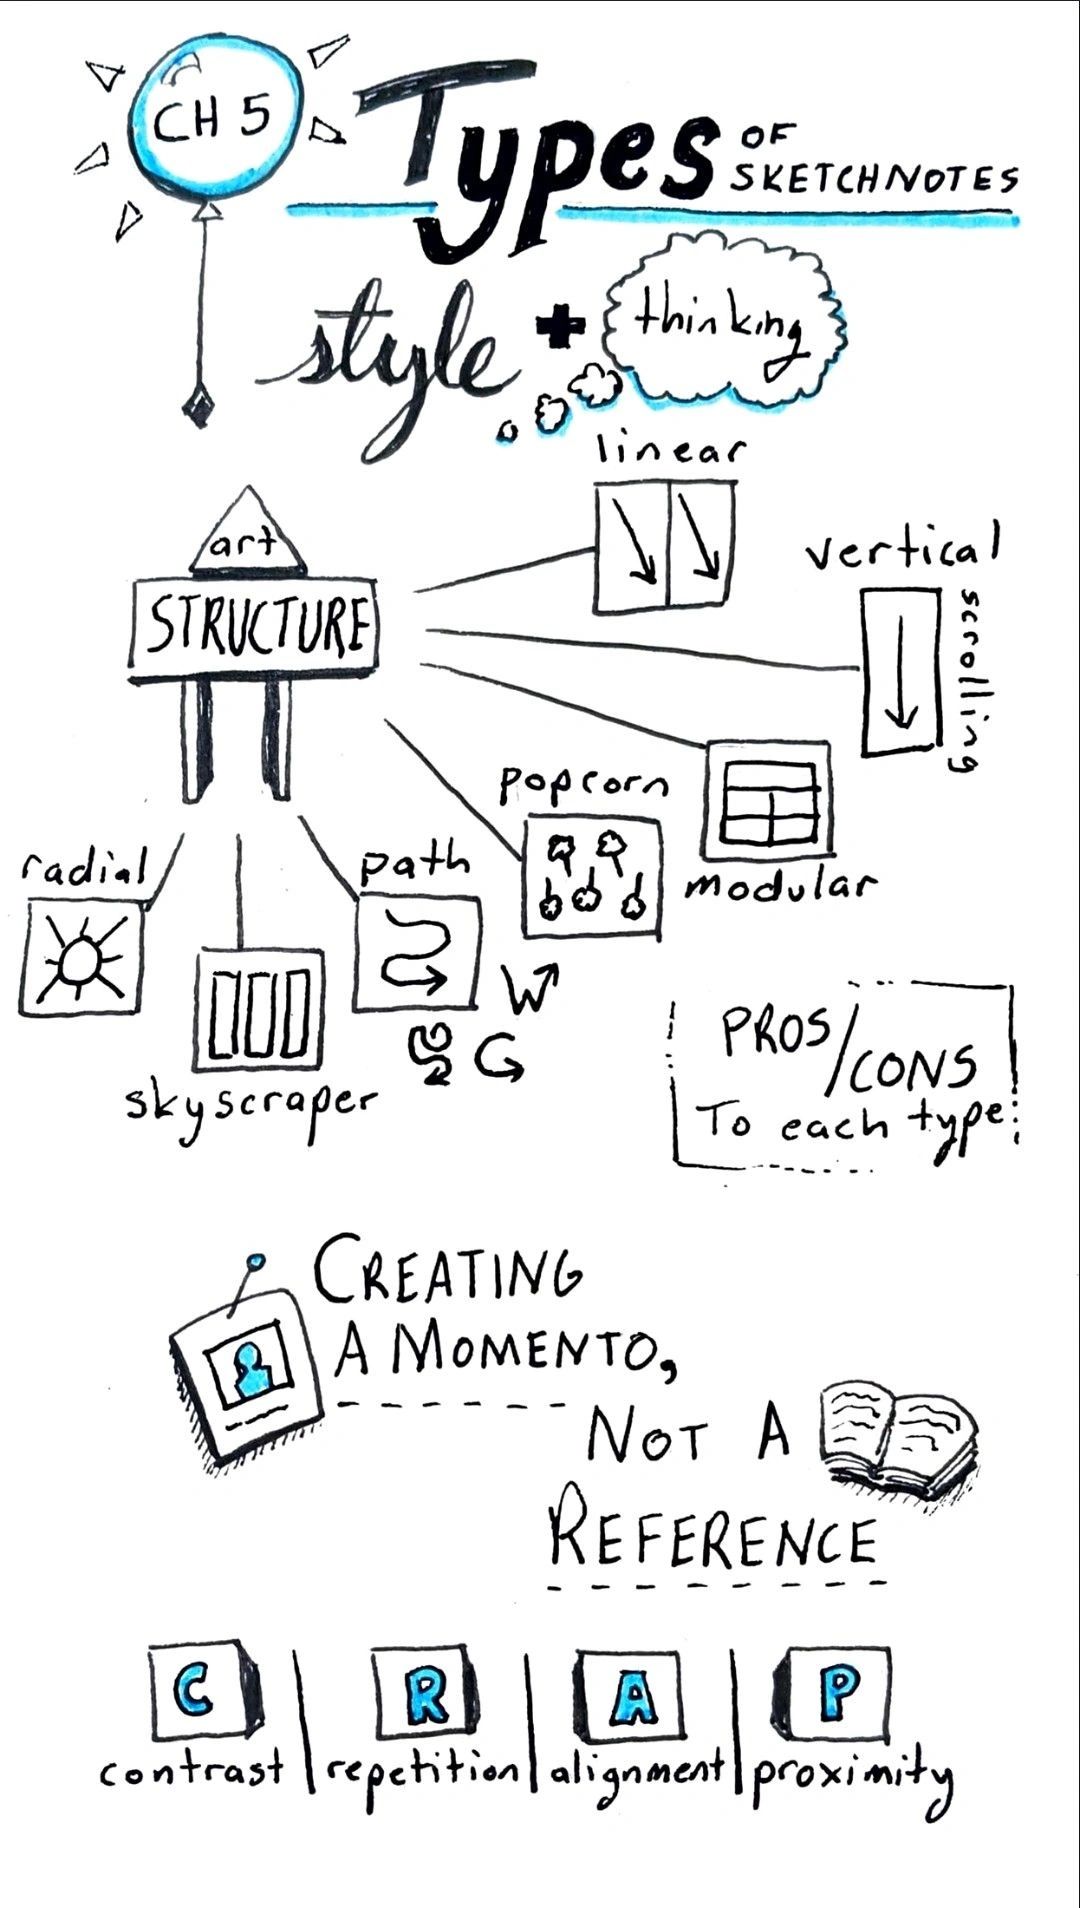 CH 5
Types OF
SKETCHNOTES
style + thinking
linear
art
STRUCTURE
vertical
scrolling
popcorn
modular
radial
path
skyscraper
PROS/CONS
To each type
CREATING
A MOMENTO,
NOT A
REFERENCE
C R A P
contrast | repetition | alignment | proximity